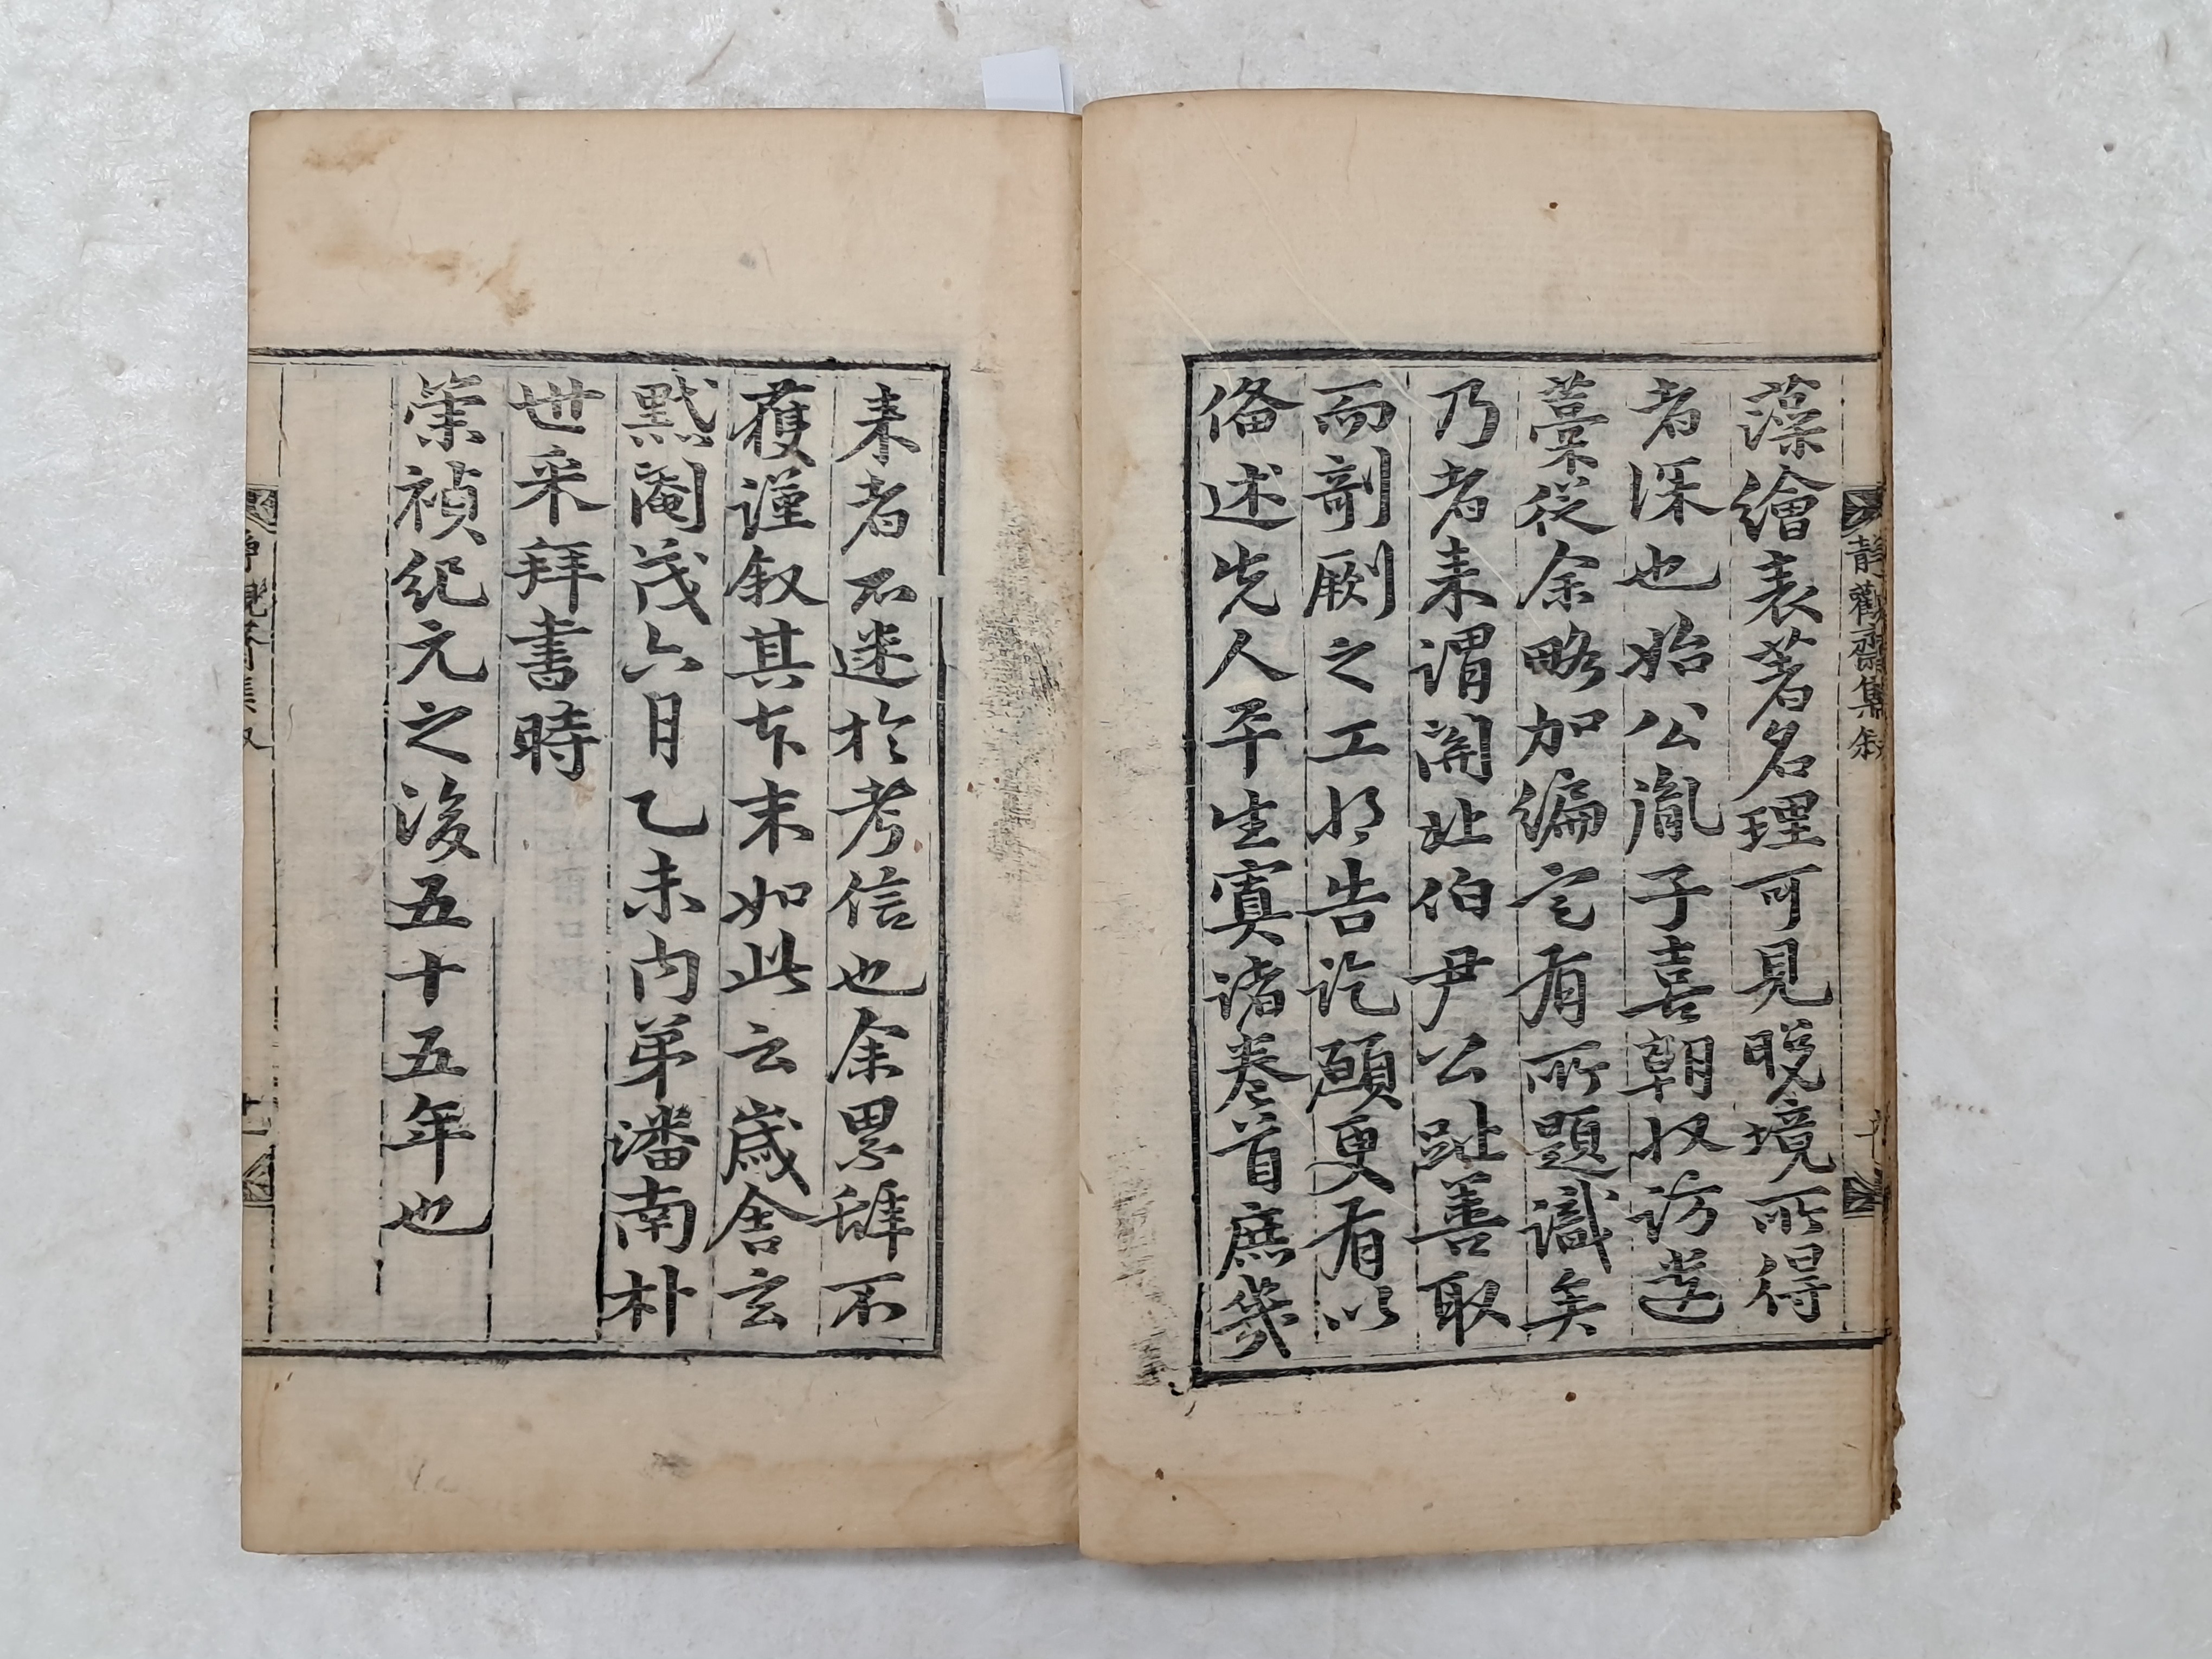 靜觀齋集叙
藻繪表著名理可見晩境所得
者深也始公胤子喜朝收訪遺
藁從余略加編定有所題識矣
乃者来謂關北伯尹公趾善取
而剞劂之工將告訖願更有以
俻述先人平生寘諸卷首庶幾
来者不迷於考信也余累辭不
獲謹叙其本末如此云歲舍玄
黓閹茂六月乙未內弟潘南朴
世采拜書時
崇禎紀元之後五十五年也